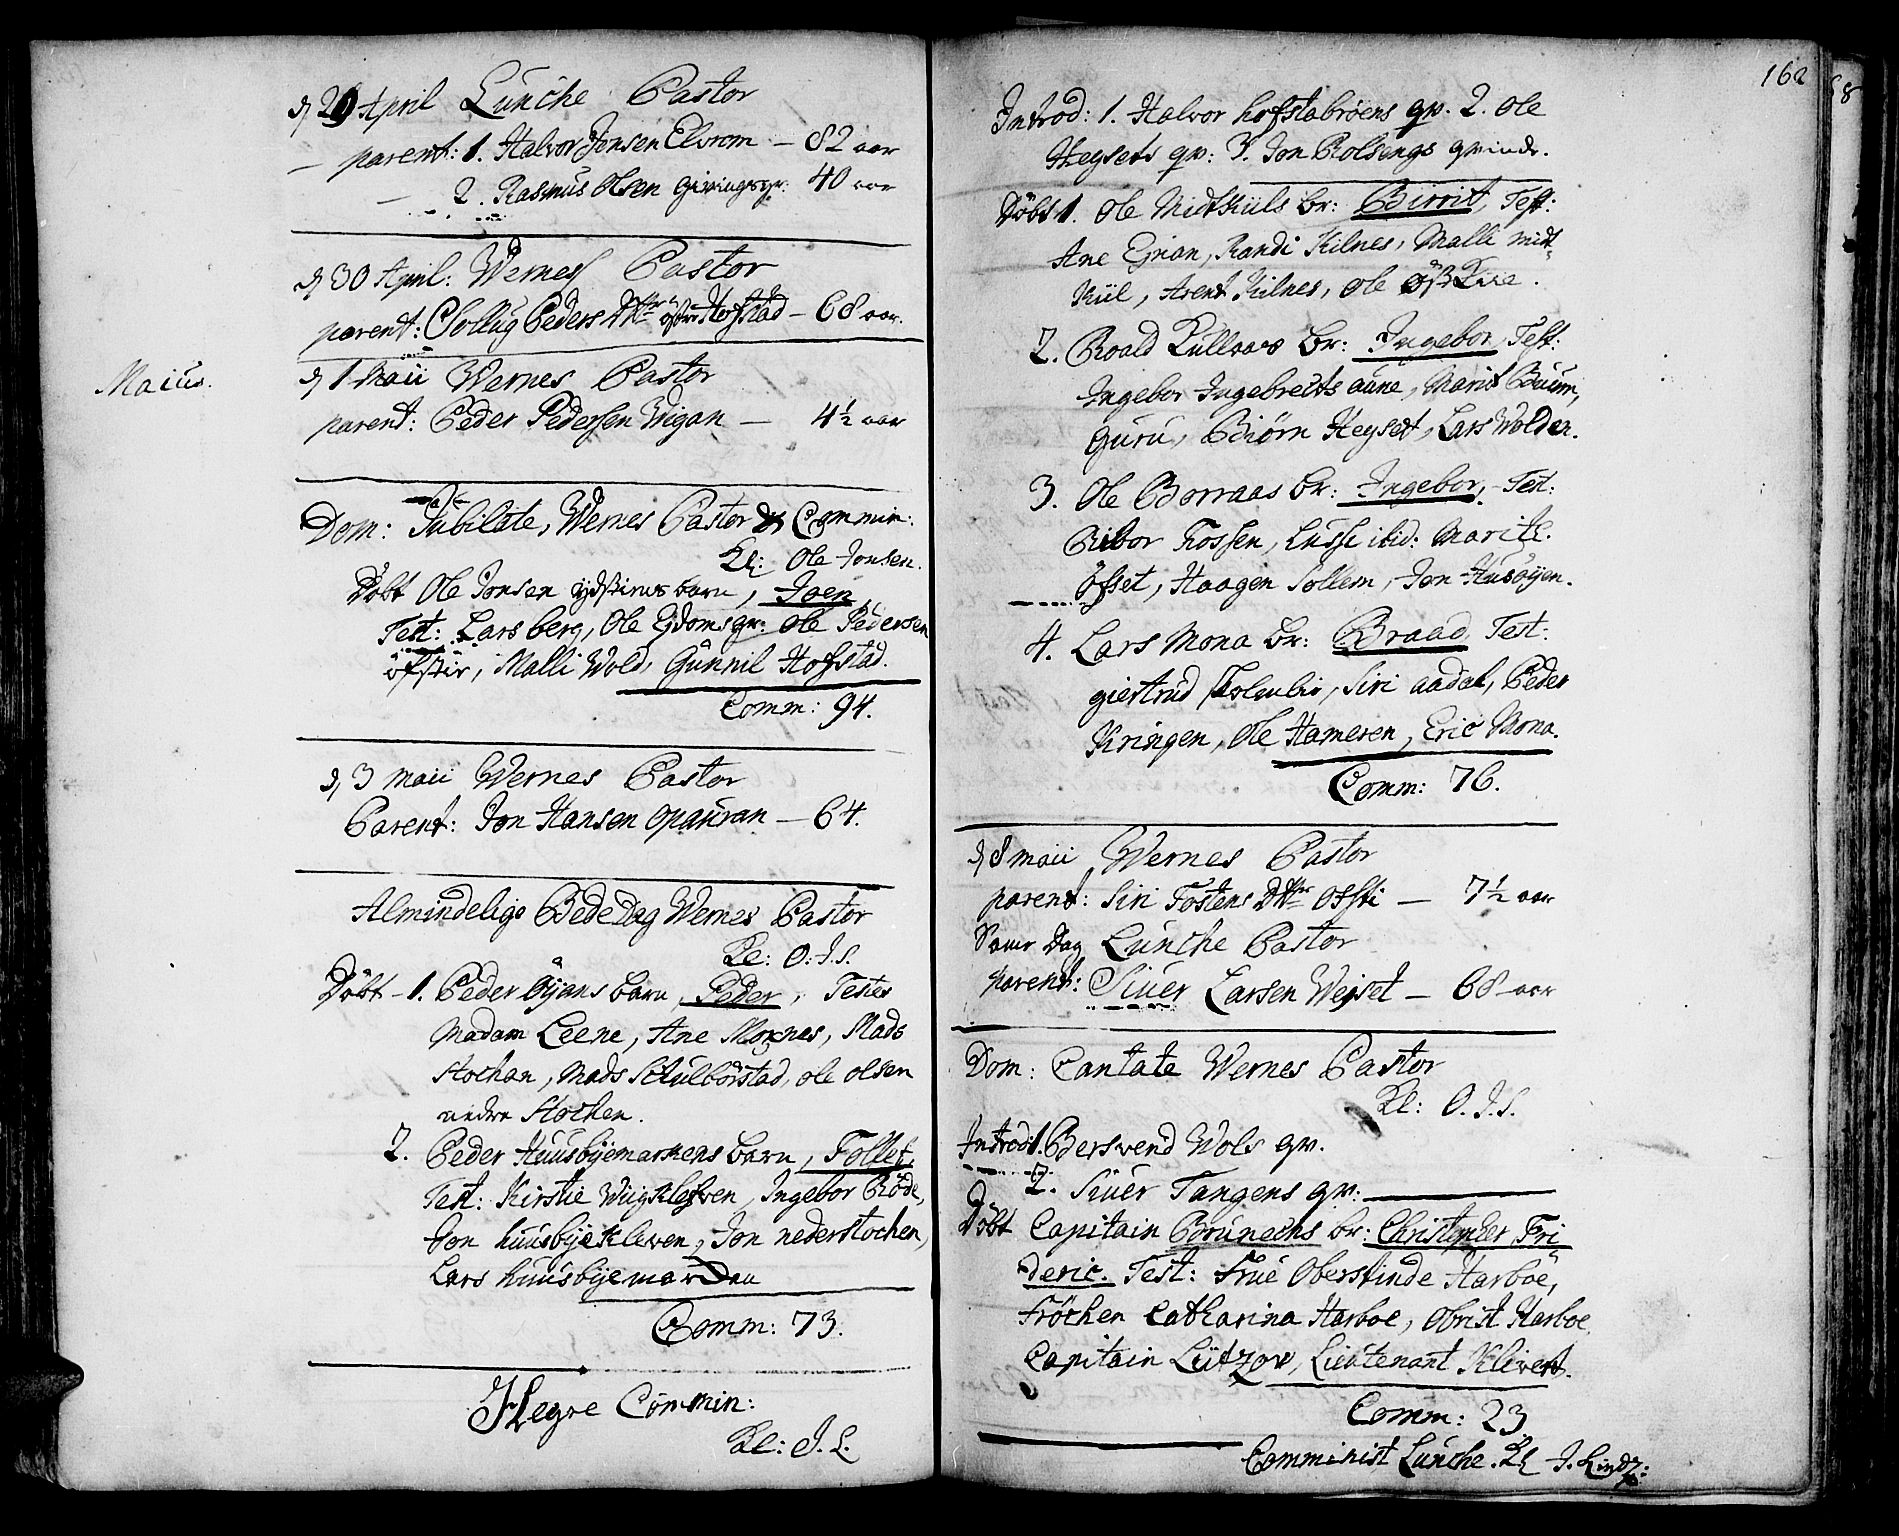 d 29 April Lunche Pastor
parent: 1. Halvor Jensen Elvrom – 82 aar
2. Rasmus Olsen Givingsgr: 40 aar
d 30 April: Wernes Pastor
parent: Sollug Peders Dttr Hofstad – 68 aar.
Maius.
d 1 Maii Wernes Pastor
parent: Peder Pedersen Wigan – 4½ aar
Dom: Jubilate, Wernes Pastor Commin:
Kl: Ole Jonsen.
Döbt Ole Jonsen barn, Joen
Test: Lars berg, Ole Ejdomsgr: Ole Pedersen
öfstie, Malli Wold, Gunnil Hofstad.
Comm: 94.
d 3 maii Wernes Pastor
Parent: Jon Hansen Opauran – 64.
Almindelige BedeDag Wernes Pastor
Kl: O. J. S.
Döbt – 1. Peder Öyans barn, Peder, Testes
Madam Leene, Ane Moxnes, Mads
Stochan, Mads Schulbörstad, ole olsen
nedre Stochen.
2. Peder Huusbyemarkens barn, Follet,
Test: Kirstie Wiigklefven, Ingebor Röde,
Jon huusbyekleven, Jon nederstochen,
Lars huusbyemarken
Comm: 73.
Hegre Commin:
Kl: J. L.
162
Introd: 1. Halvor hofstabröens qv. 2. Ole
Heysets qv: 3. Jon Rolsengs qvinde.
Döbt 1. Ole Midtkiils br: Birrit, Test:
Ane Grian, Randi Kilnes, Malli midt
Kiil, Arent Kilnes, Ole
2. Roald Kullraas br: Ingebor, Test:
Ingebor Ingebrects aune, Marit Buum,
Guru, Biörn Heyset, Lars Wolden.
3. Ole Borraas br: Ingebor, Test:
Ribor Fossen, Lussi ibid: Marite
öfset, Haagen Sollem, Jon Husöyen.
4. Lars Mona br: Braad Test:
giertrud, Siri aadal, Peder
Kringen, Ole Hameren, Eric Mona.
Comm: 76.
d 8 maii Wernes Pastor
parent: Siri Tostens Dttr Ofsti – 7½ aar
Samme Dag Lunche Pastor
parent: Siuer Larsen Wejset – 68 aar
Dom: Cantate Wernes Pastor
Kl: O. J. S.
Introd: 1. Berswend Wols qv.
2. Siuer Tangens qv:
Döbt Capitain Brunechs br: Christopher Fri
deric. Test: Frue Oberstinde Harboe,
Fröchen Catharina Harboe, Obrist Harboe
Capitain Lützov, Lieutenant Klivert.
Comm: 23
Comminist Lunche. Kl J. Lindz: